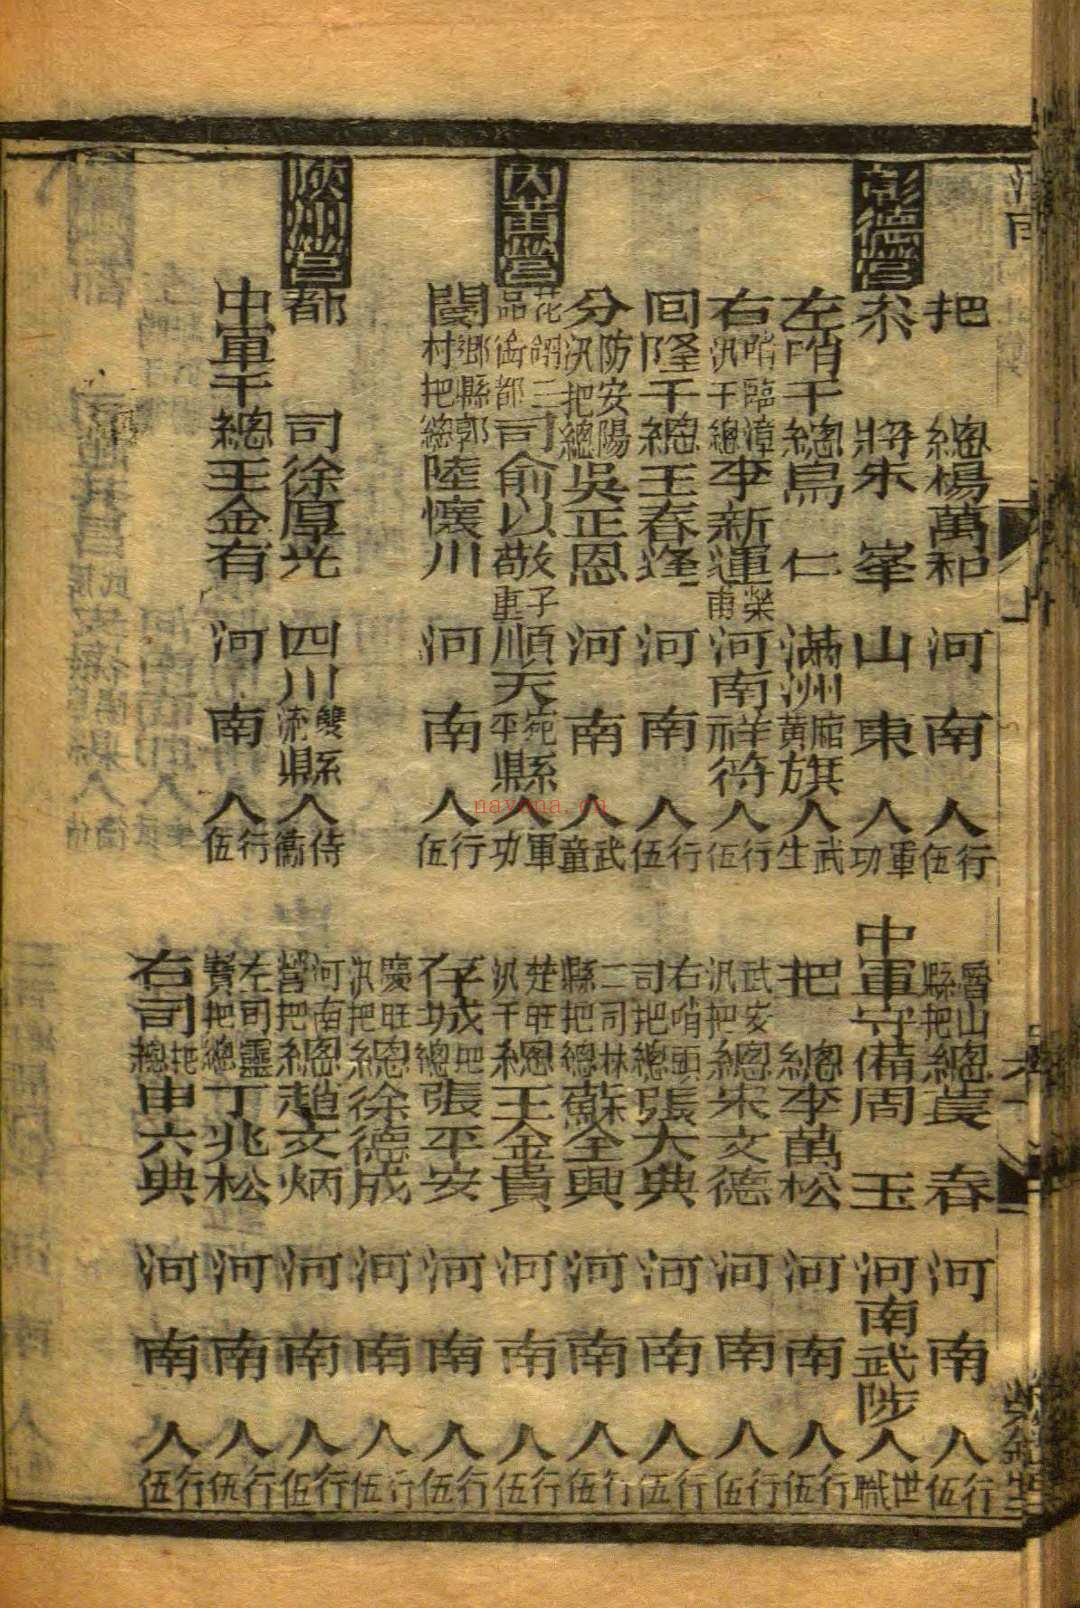 把總楊萬和河南人行伍
魯山縣把總袁春河南人行伍
彰德營
叅將朱峯山東人軍功
中軍守備周玉河南武陟人世職
左哨千總烏仁滿洲廂黃旗人武生
把總李萬松河南人行伍
右哨臨漳汛千總李新運榮甫河南祥符人行伍
武安汛把總宋文德河南人行伍
囘隆千總王春逢河南人行伍
右哨頭司把總張大典河南人行伍
分防安陽汛把總吳正恩河南人武童
二司林縣把總蘇全興河南人行伍
內黃營
花翎三品銜都司俞以敬子重順天宛平縣人軍功
楚旺汛千總王金貴河南人行伍
閿鄉縣郭村把總陸懷川河南人行伍
存城把總張平安河南人行伍
慶旺汛把總徐德成河南人行伍
陝州營
都司徐厚光四川雙流縣人侍衞
河南營把總趙文炳河南人行伍
中軍千總王金有河南人行伍
左司靈寶把總丁兆松河南人行伍
右司把總申六典河南人行伍
nayona.cn